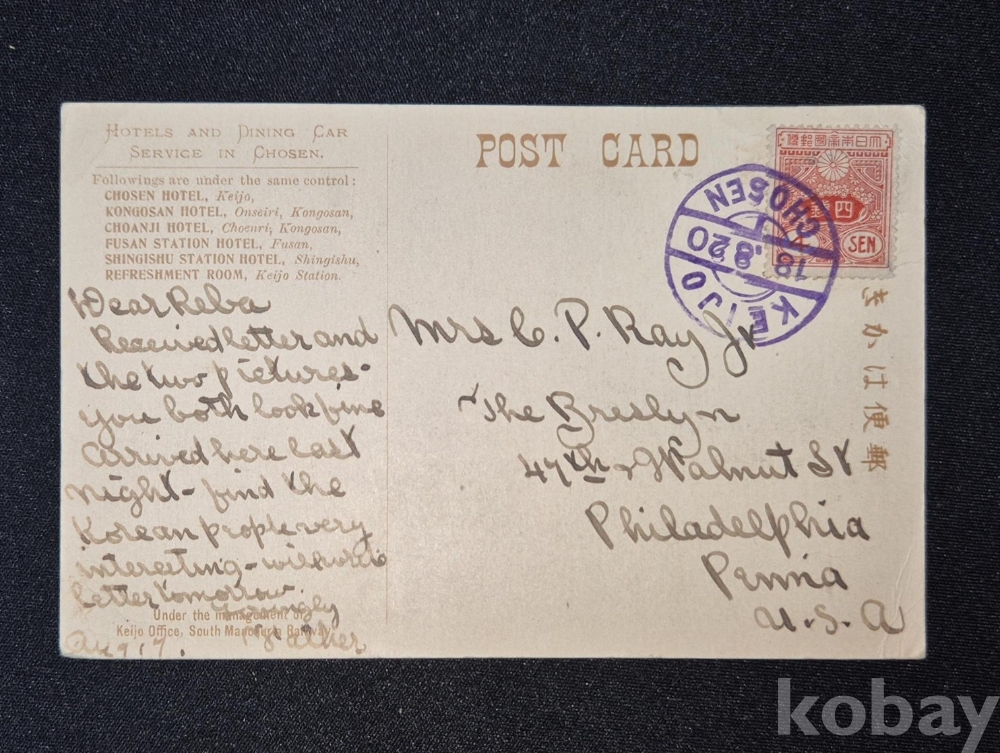 HOTELS AND DINING CAR
SERVICE IN CHOSEN.
Followings are under the same control:
CHOSEN HOTEL, Keijo,
KONGOSAN HOTEL, Onseiri, Kongosan,
CHOANJI HOTEL, Choenri, Kongosan,
FUSAN STATION HOTEL, Fusan,
SHINGISHU STATION HOTEL, Shingishu,
REFRESHMENT ROOM, Keijo Station.
Dear Reba
Received letter and
the two pictures-
you both look fine
arrived here last
night- find the
Korean people very
interesting- will write
letter tomorrow
Lovingly
Father
Aug 17.
Under the management of
Keijo Office, South Manchuria Railway
POST CARD
大日本帝國郵便
四
SEN
CHOSEN
18.8.20
KEIJO
Mrs C. P. Ray Jr
The Breslyn
47th & Walnut St
Philadelphia
Penna
U.S.A
きかは便郵
kobay